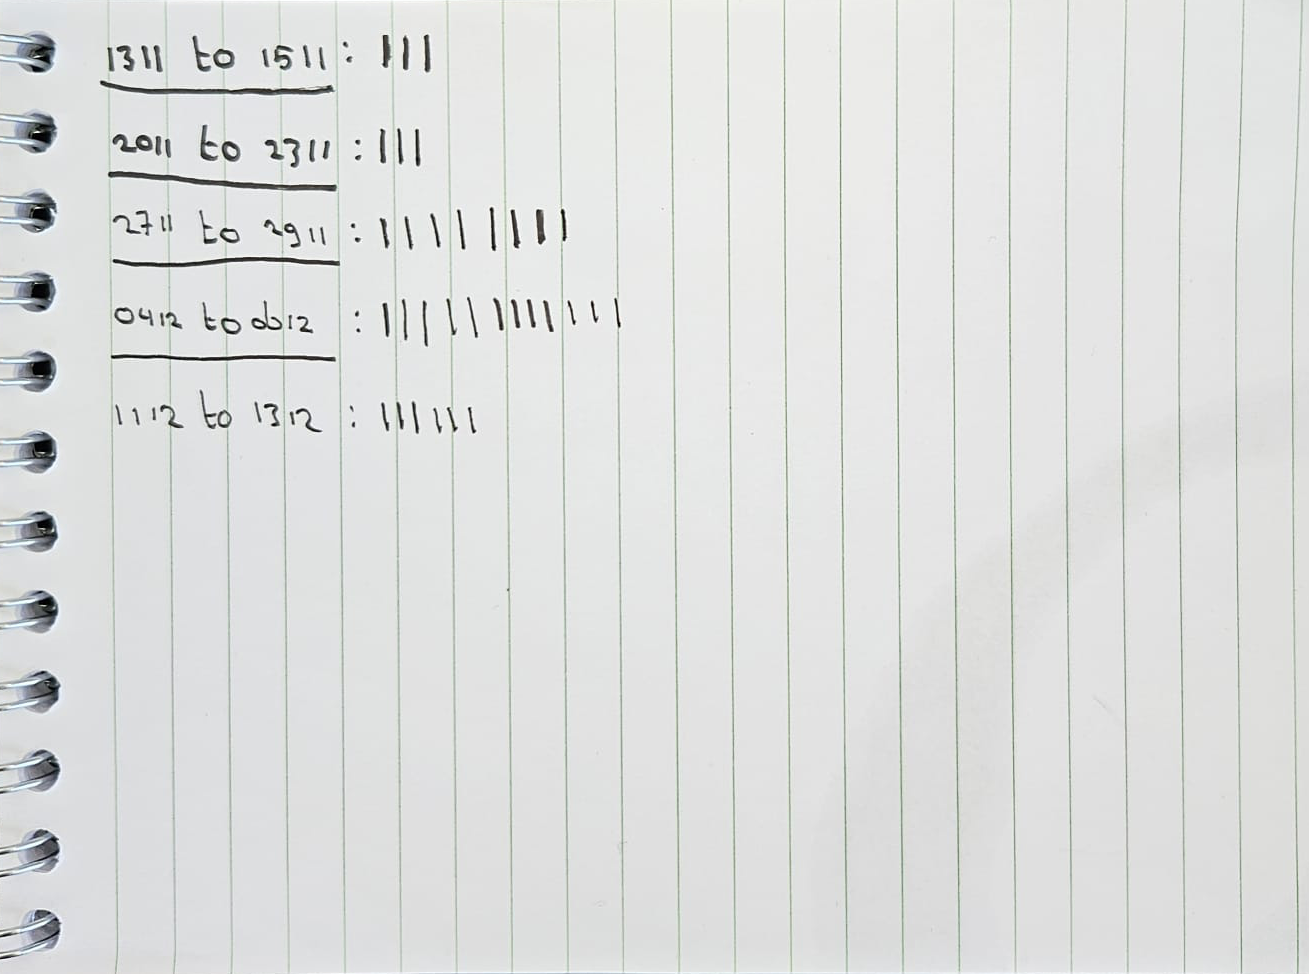 1311 to 1511 : |||
2011 to 2311 : |||
2711 to 2911 : ||||||||
0412 to 0612 : ||||||||||||
1112 to 1312 : ||||||